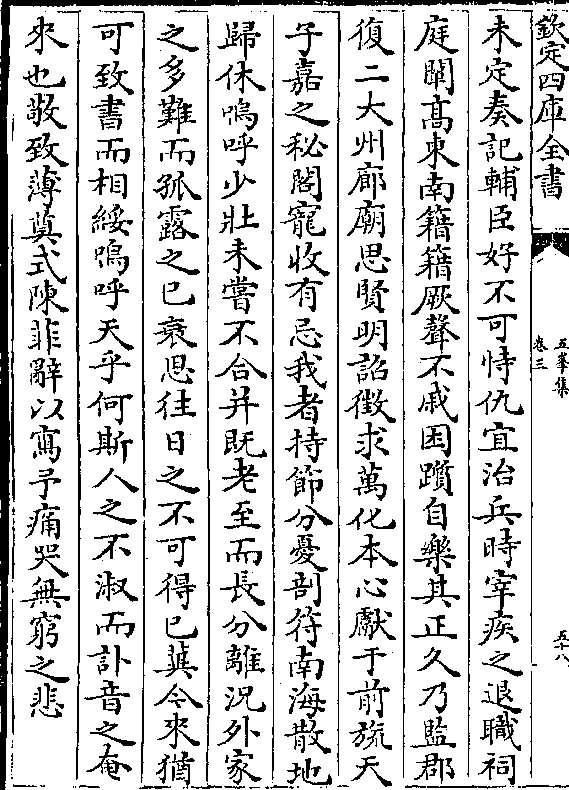 欽定四庫全書
五峯集
卷三
五十八
未定奏記輔臣好不可恃仇宜治兵時宰疾之退職祠
庭聞髙東南籍籍厥聲不戚困躓自樂其正久乃監郡
復二大州廊廟思賢明詔徵求萬化本心獻于前旒天
子嘉之秘閣寵收有忌我者持節分憂剖符南海散地
歸休嗚呼少壯未嘗不合并既老至而長分離況外家
之多難而孤露之已衰思往日之不可得已蓂今來猶
可致書而相綏嗚呼天乎何斯人之不淑而訃音之奄
來也敬致薄奠式陳菲辭以寫予痛哭無窮之悲